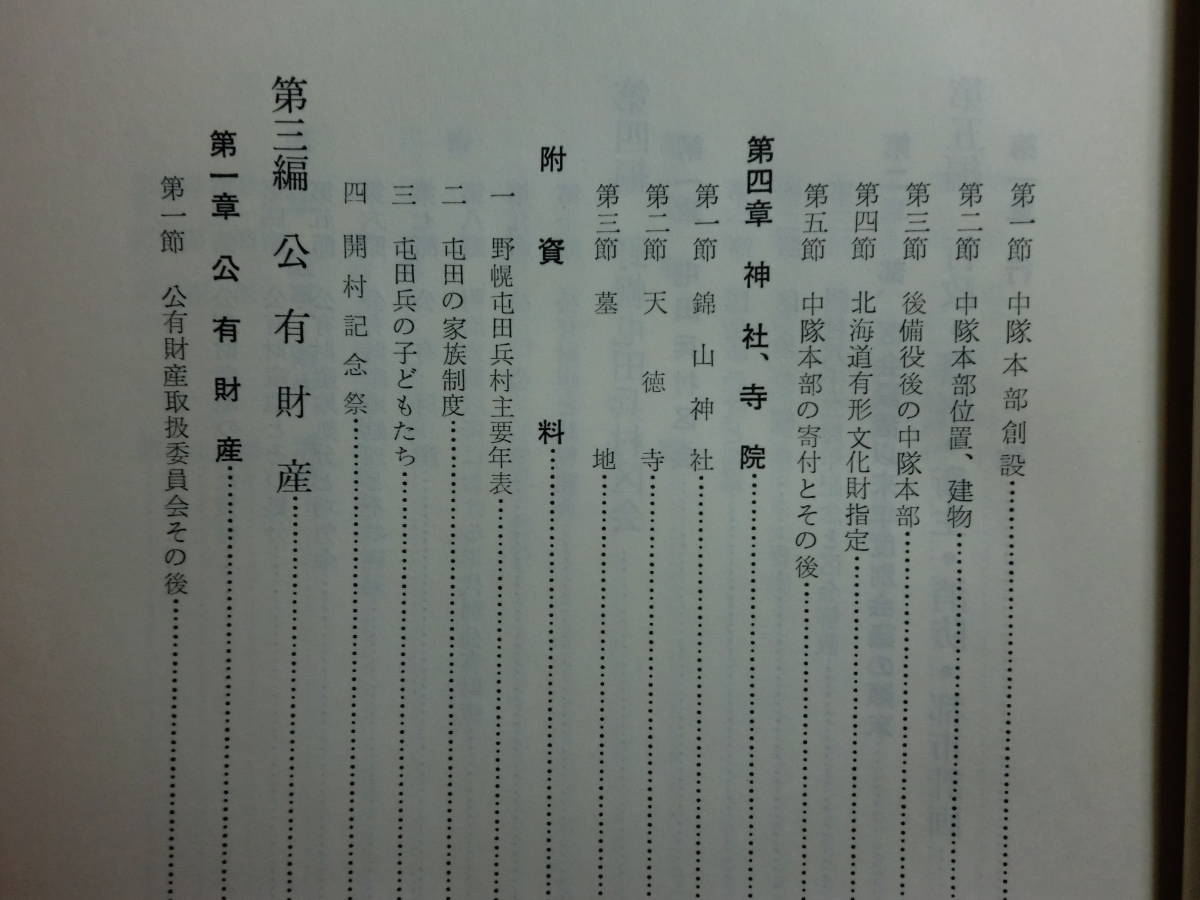 第一節 中隊本部創設
第二節 中隊本部位置、建物
第三節 後備役後の中隊本部
第四節 北海道有形文化財指定
第五節 中隊本部の寄付とその後
第四章 神社、寺院
第一節 錦山神社
第二節 天徳寺
第三節 墓地
附資料
一 野幌屯田兵村主要年表
二 屯田の家族制度
三 屯田兵の子どもたち
四 開村記念祭
第三編 公有財産
第一章 公有財産
第一節 公有財産取扱委員会その後